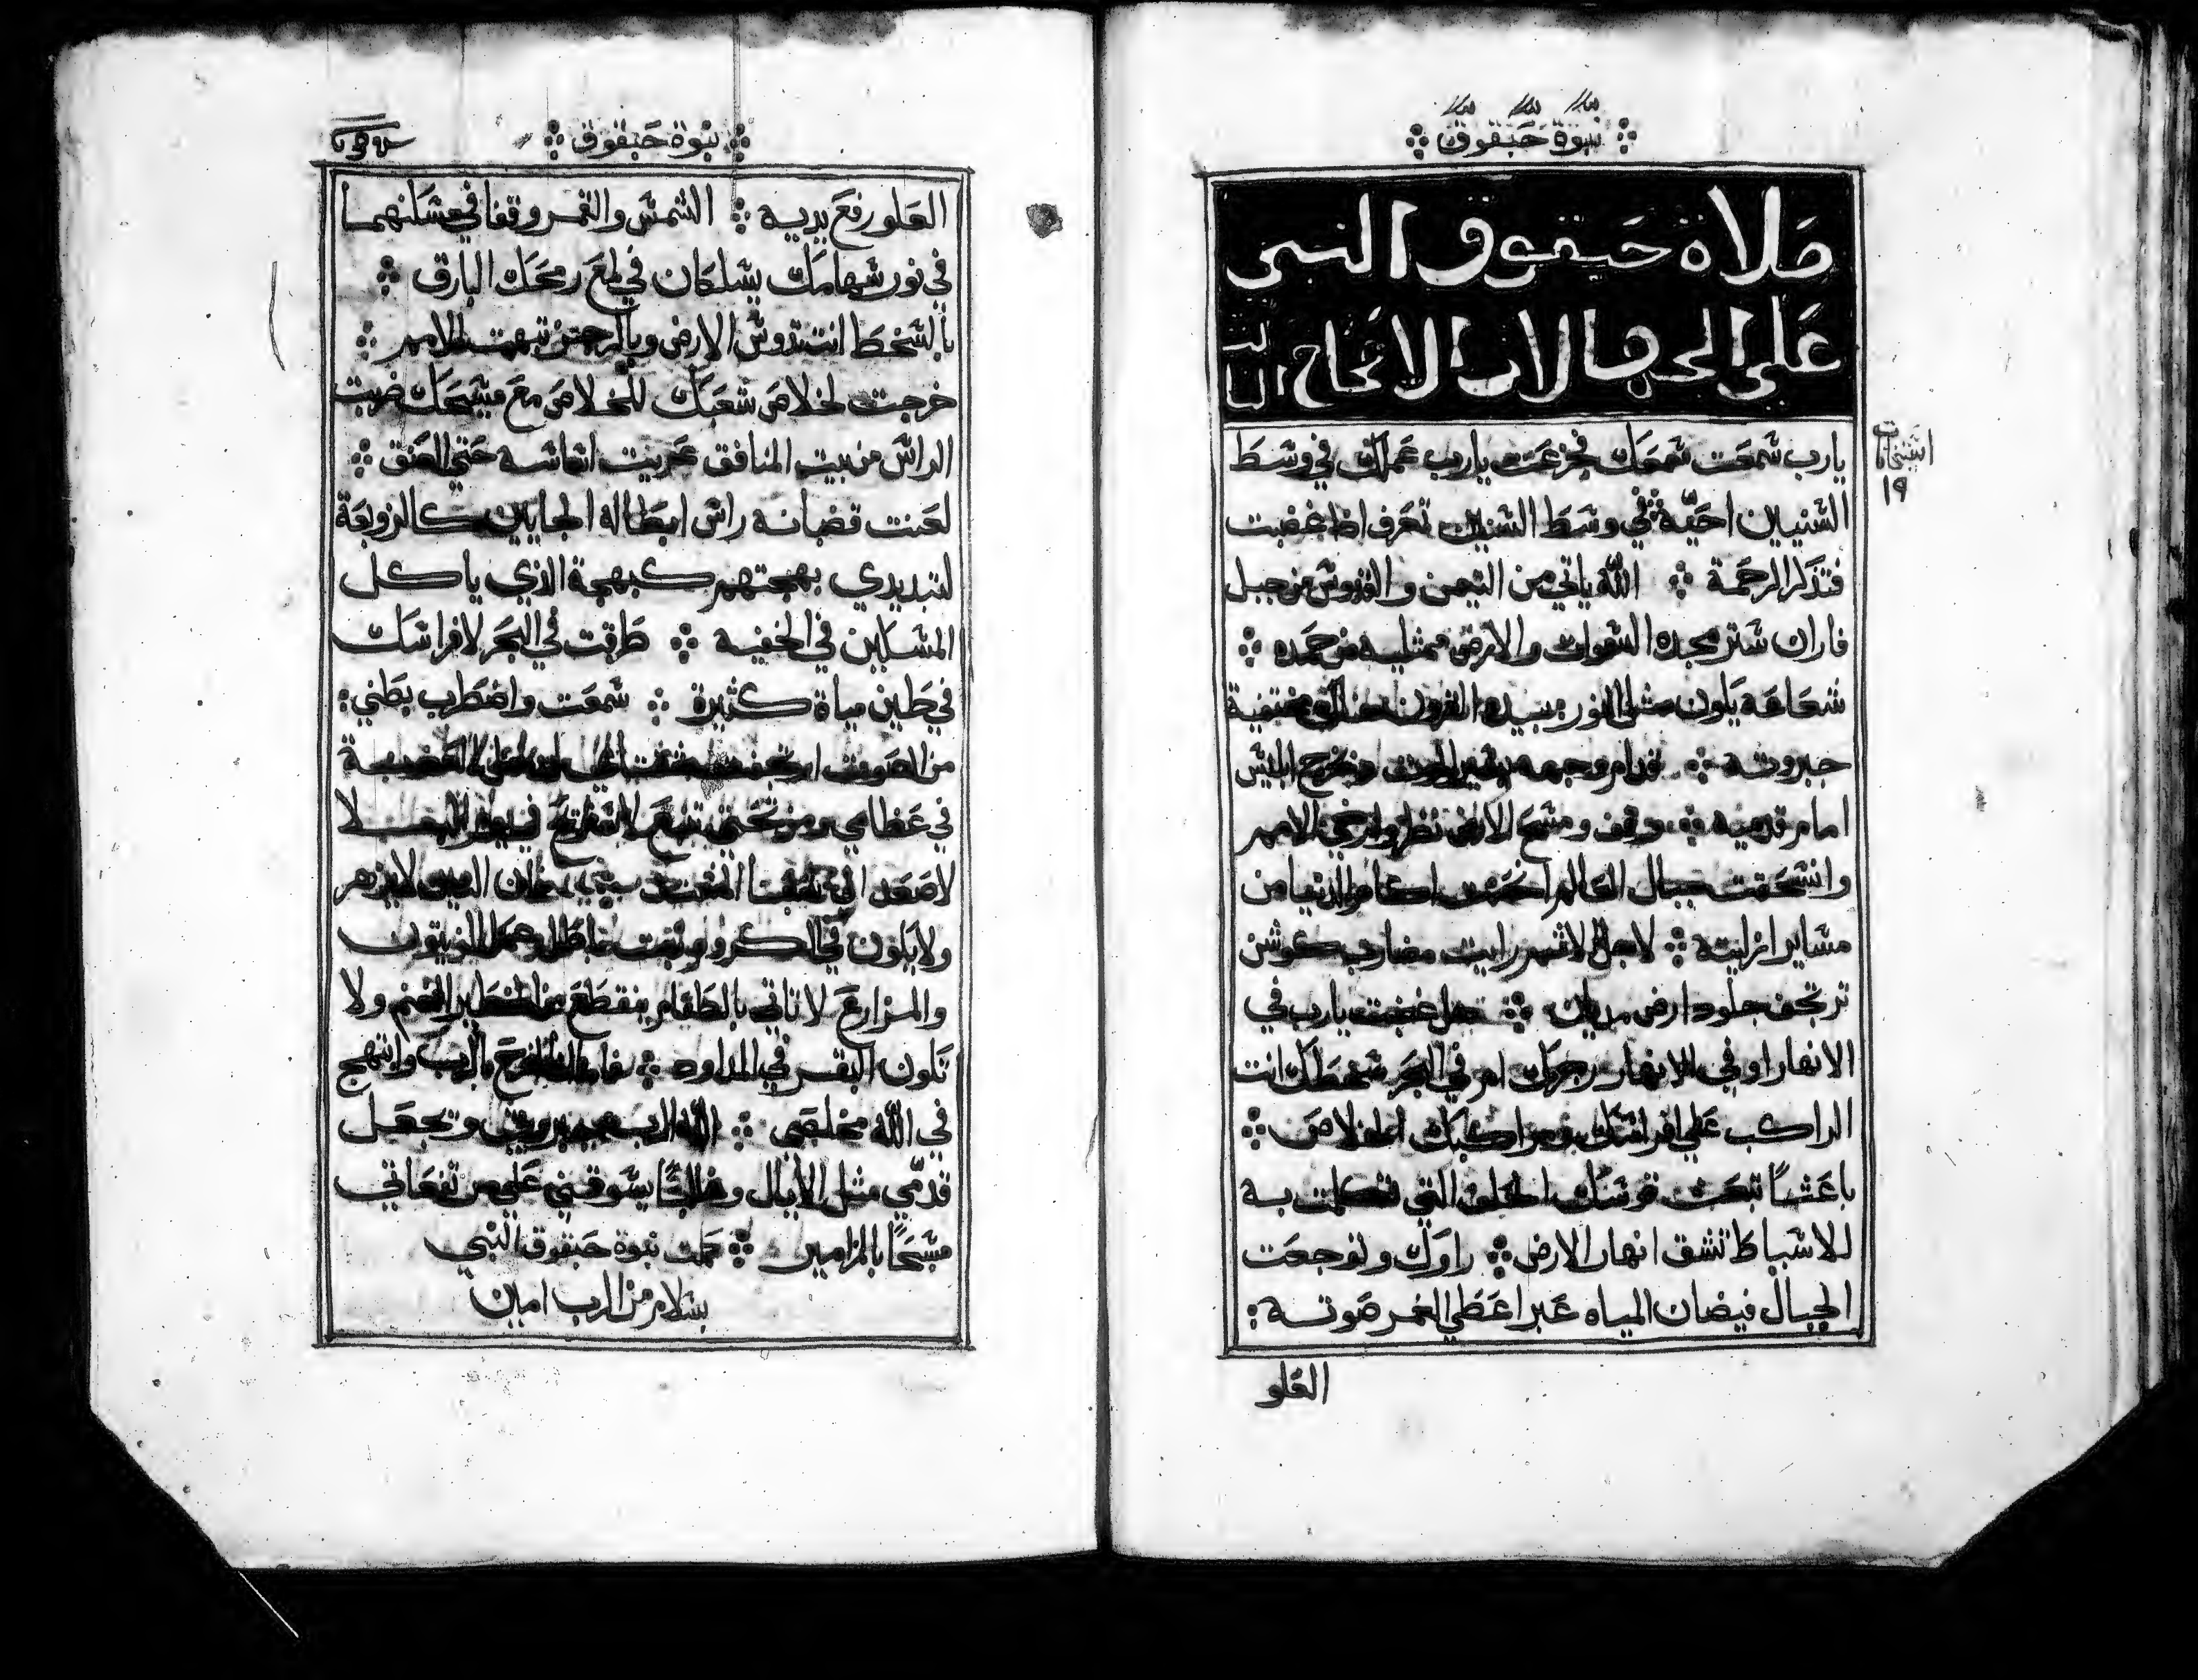 نبوة حبقوق
صلاة حبقوق النبى
على الجهالات الاصحاح الثالث
يارب سمعت سمعك فجزعت يارب عملك في وسط
السنيين احيّه في وسط السنين تعرف اذا غضبت
فتذكر الرحمة الله ياتي من التيمن والقدوس من جبل
فاران ستر مجده السموات والارض ممتليه من حمده
شعاعه يكون مثل النور بيده القرون هناك مختفية
جبروته قدام وجهه يسير الموت ويخرج ابليس
امام قدميه وقف ومسح الارض نظر وارخي الامم
وانسحقت جبال العالم اكام الدنيا من
مساير ازليته لاجل الاثم رايت مضارب كوش
ترتجف جلود ارض مديان هل غضبت يارب في
الانهار او في الانهار رجزك ام في البحر سخطك انت
الراكب على افراسك ومراكبك الخلاص
باعثا تبعث قوسك الحلف التي تكلمت به
للاسباط تشق انهار الارض راوك وتوجعت
الجبال فيضان المياه عبر اعطي الغمر صوته
العلو
اشتحتات
١٩
نبوة حبقوق
العلو رفع يديه الشمس والقمر وقفا في مسكنهما
في نور سهامك يسلكان في لمع رمحك البارق
بالسخط انت تدوس الارض وبالرجز تبهت الامم
خرجت لخلاص شعبك للخلاص مع مسيحك ضربت
الراس من بيت المنافق عريت اساسه حتي العنق
لعنت قضبانه راس ابطاله الجايين كالزوبعة
لتبديدي بهجتهم كبهجة الذي ياكل
المسكين في الخفيه طرقت في البحر لافراسك
في طين مياة كثيرة سمعت واضطرب بطني
من الصوت ارتجفت
في عظامي ومن تحتي
لاصعد الي شعبنا لان التين لا يزهر
ولا يكون في الكروم نبت عمل الزيتون
والمزارع لا تاتي بالطعام ينقطع من الحظاير الغنم ولا
تكون البقر في المداود فاما انا افرح بالرب وابتهج
في الله مخلصي الله الرب جبروتي وتجعل
قدمي مثل الايال وغالبًا يسوقني علي مرتفعاتي
مسبحًا بالمزامير تمت نبوة حبقوق النبي
بسلام من الرب امين